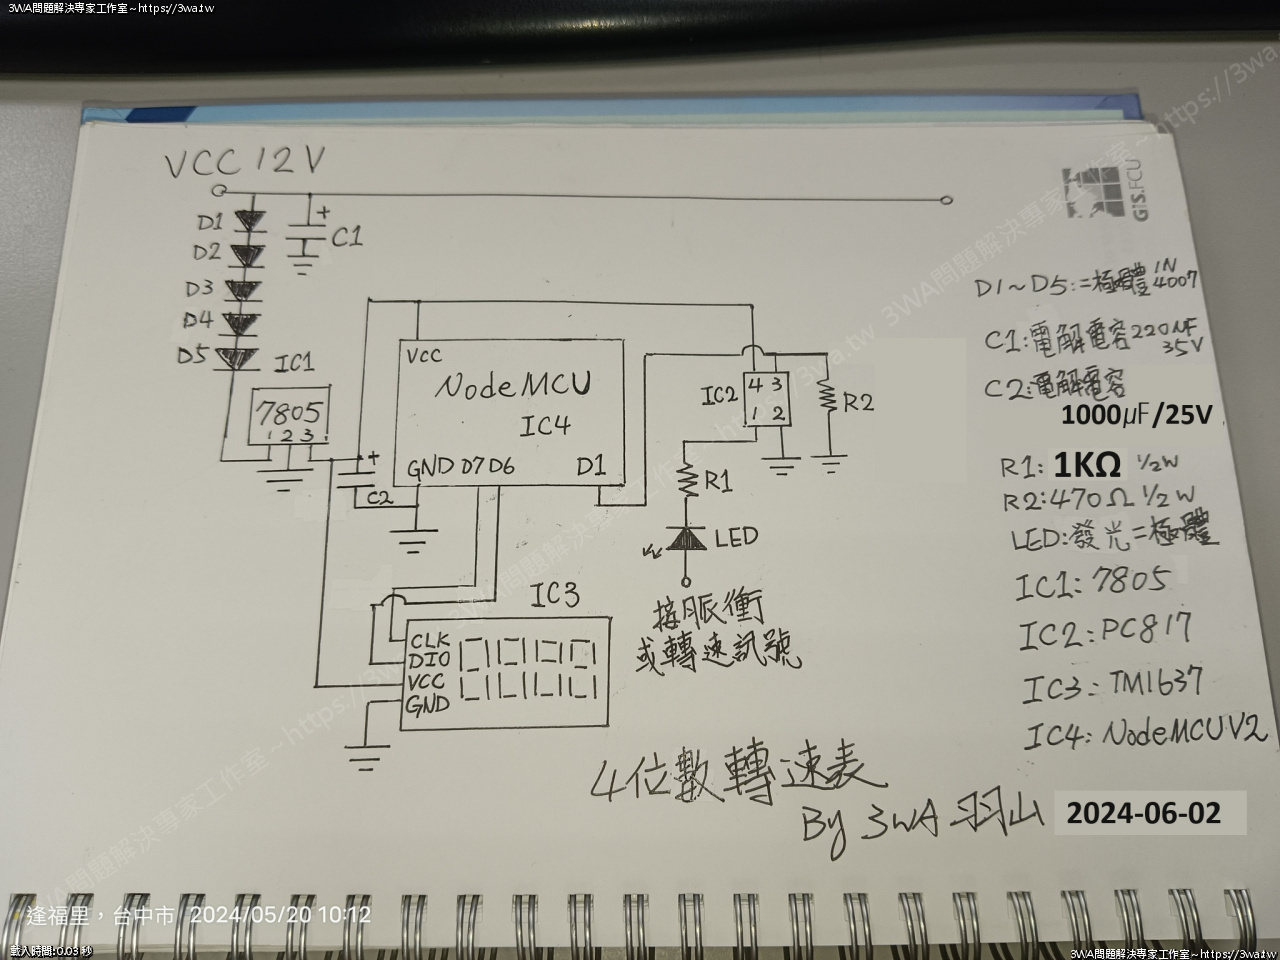 3WA問題解決專家工作室~https://3wa.tw
GIS.FCU
VCC 12V
D1
D2
D3
D4
D5
+
C1
IC1
7805
1 2 3
+
C2
VCC
NodeMCU
IC4
GND D7 D6 D1
IC2
4 3
1 2
R2
R1
LED
接脈衝
或轉速訊號
IC3
CLK
DIO
VCC
GND
D1~D5:二極體 1N4007
C1:電解電容220μF 35V
C2:電解電容
1000μF/25V
R1: 1KΩ 1/2W
R2:470Ω 1/2W
LED:發光二極體
IC1: 7805
IC2:PC817
IC3: TM1637
IC4: NodeMCU V2
4位數轉速表
By 3WA 羽山 2024-06-02
3WA問題解決專家工作室~https://3wa.tw
3WA問題解決專家工作室~https://3wa.tw
逢福里,台中市 2024/05/20 10:12
載入時間:0.03 秒
3WA問題解決專家工作室~https://3wa.tw